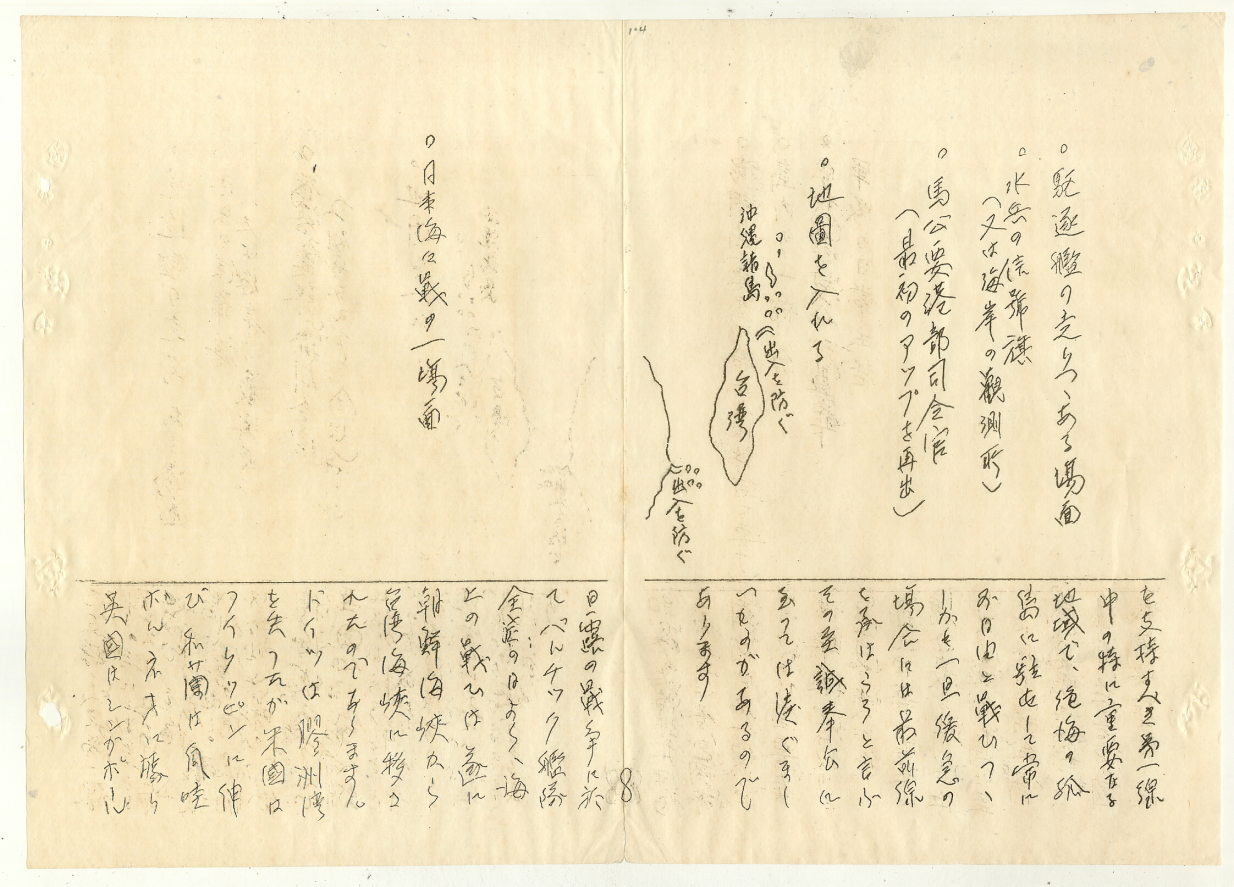 104
○駆逐艦の走りつゝある場面
○水兵の信號旗
(又は海岸の觀測所)
○馬公要港部司令官
(最初のアップを再出)
○地圖を入れる
(出入を防ぐ
沖縄諸島
台湾
(出入を防ぐ
○日本海々戰の一場面
を支持すべき第一線
中の特に重要なる
地域で、絶海の孤
島に駐在して常に
不自由と戰ひつゝ
しかも一旦緩急の
場合には最前線
を承はらうと言ふ
その至誠奉公に
至つては涙ぐまし
いものがあるのであ
ります
日露の戰争に於
てバルチック艦隊
全滅の日より、海
上の戰ひは遂に
朝鮮海峡から
台湾海峡に移さ
れたのであります。
ドイツは膠洲湾
を失つたが米國は
フイリッピンに伸
び和蘭は爪哇
ボルネオに勝り
英國はシンガポール
8